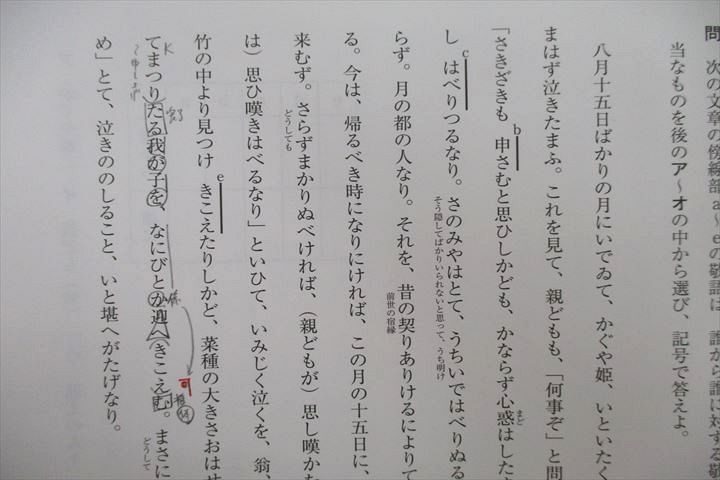 問 次の文章の傍線部a~eの敬語は、誰から誰に対する敬
当なものを後のア~オの中から選び、記号で答えよ。
八月十五日ばかりの月にいでゐて、かぐや姫、いといたく
まはず泣きたまふ。これを見て、親どもも、「何事ぞ」と問
b
「さきざきも 申さむと思ひしかども、かならず心惑はした
まど
c
し はべりつるなり。さのみやはとて、うちいではべりぬる
そう隠してばかりいられないと思って、うち明け
らず。月の都の人なり。それを、昔の契りありけるによりて
前世の宿縁
る。今は、帰るべき時になりにければ、この月の十五日に、
来むず。さらずまかりぬべければ、(親どもが)思し嘆かむ
どうしても
は)思ひ嘆きはべるなり」といひて、いみじく泣くを、翁、
e
竹の中より見つけ きこえたりしかど、菜種の大きさおはせ
K
てまつりたる我が子を、なにびとか迎へきこえむ。まさに
係
可
どうして
め」とて、泣きののしること、いと堪へがたげなり。